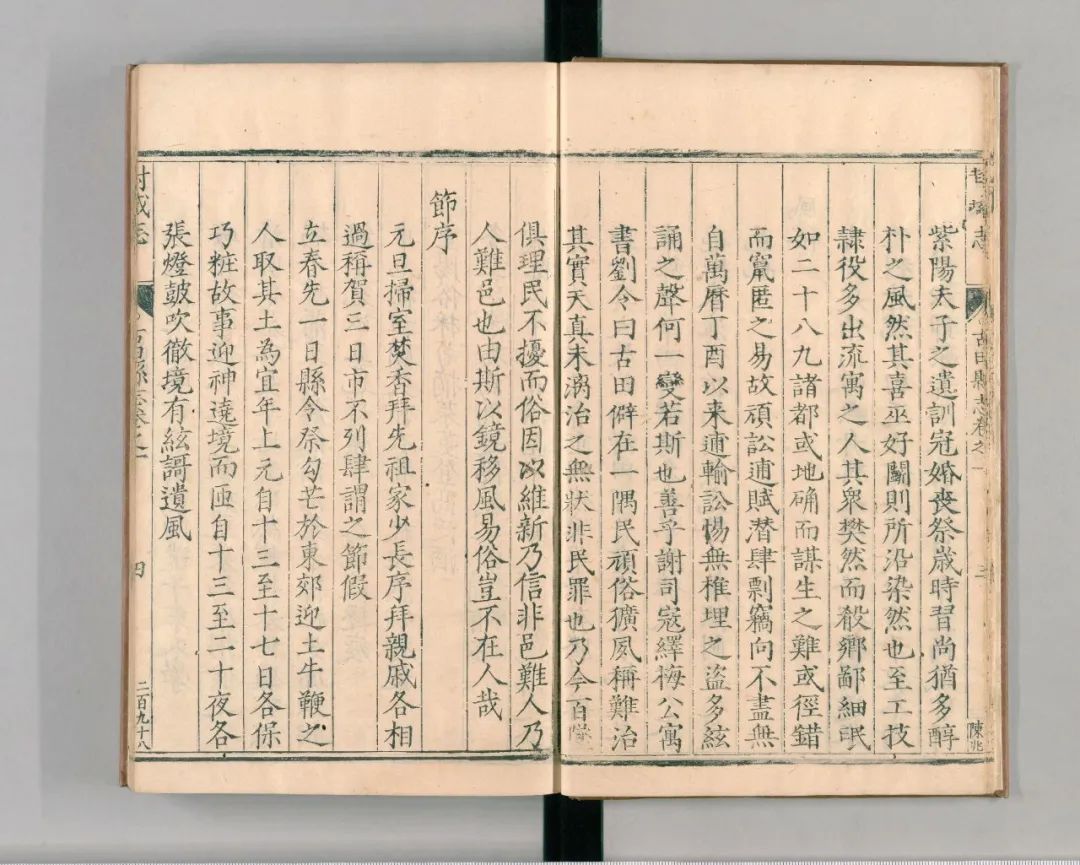 古田縣志卷之一
陳兆
紫陽夫子之遺訓冠婚喪祭歲時習尚猶多醇
朴之風然其喜巫好鬭則所沿染然也至工技
隸役多出流寓之人其衆樊然而殽鄉鄙細眠
如二十八九諸都或地确而謀生之難或徑錯
而竄匿之易故頑訟逋賦潛肆剽竊向不盡無
自萬曆丁酉以来逋輸訟惕無椎埋之盜多絃
誦之聲何一變若斯也善乎謝司寇繹梅公寓
書劉令曰古田僻在一隅民頑俗獷夙稱難治
其實天真未漓治之無狀非民罪也乃今百
俱理民不擾而俗因以維新乃信非邑難人乃
人難邑也由斯以鏡移風易俗豈不在人哉
節序
元旦掃室焚香拜先祖家少長序拜親戚各相
過稱賀三日市不列肆謂之節假
立春先一日縣令祭勾芒於東郊迎土牛鞭之
人取其土為宜年上元自十三至十七日各保
巧粧故事迎神遶境而匝自十三至二十夜各
張燈皷吹徹境有絃謌遺風
四
二百九十八